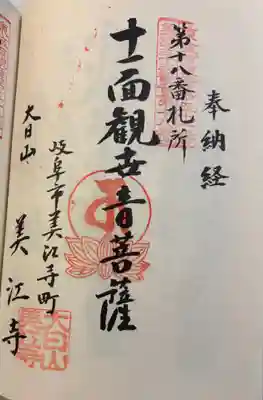 奉納経
第十八番札所
十一面観世音菩薩
岐阜市美江寺町
大日山
美江寺
大日山
美江寺